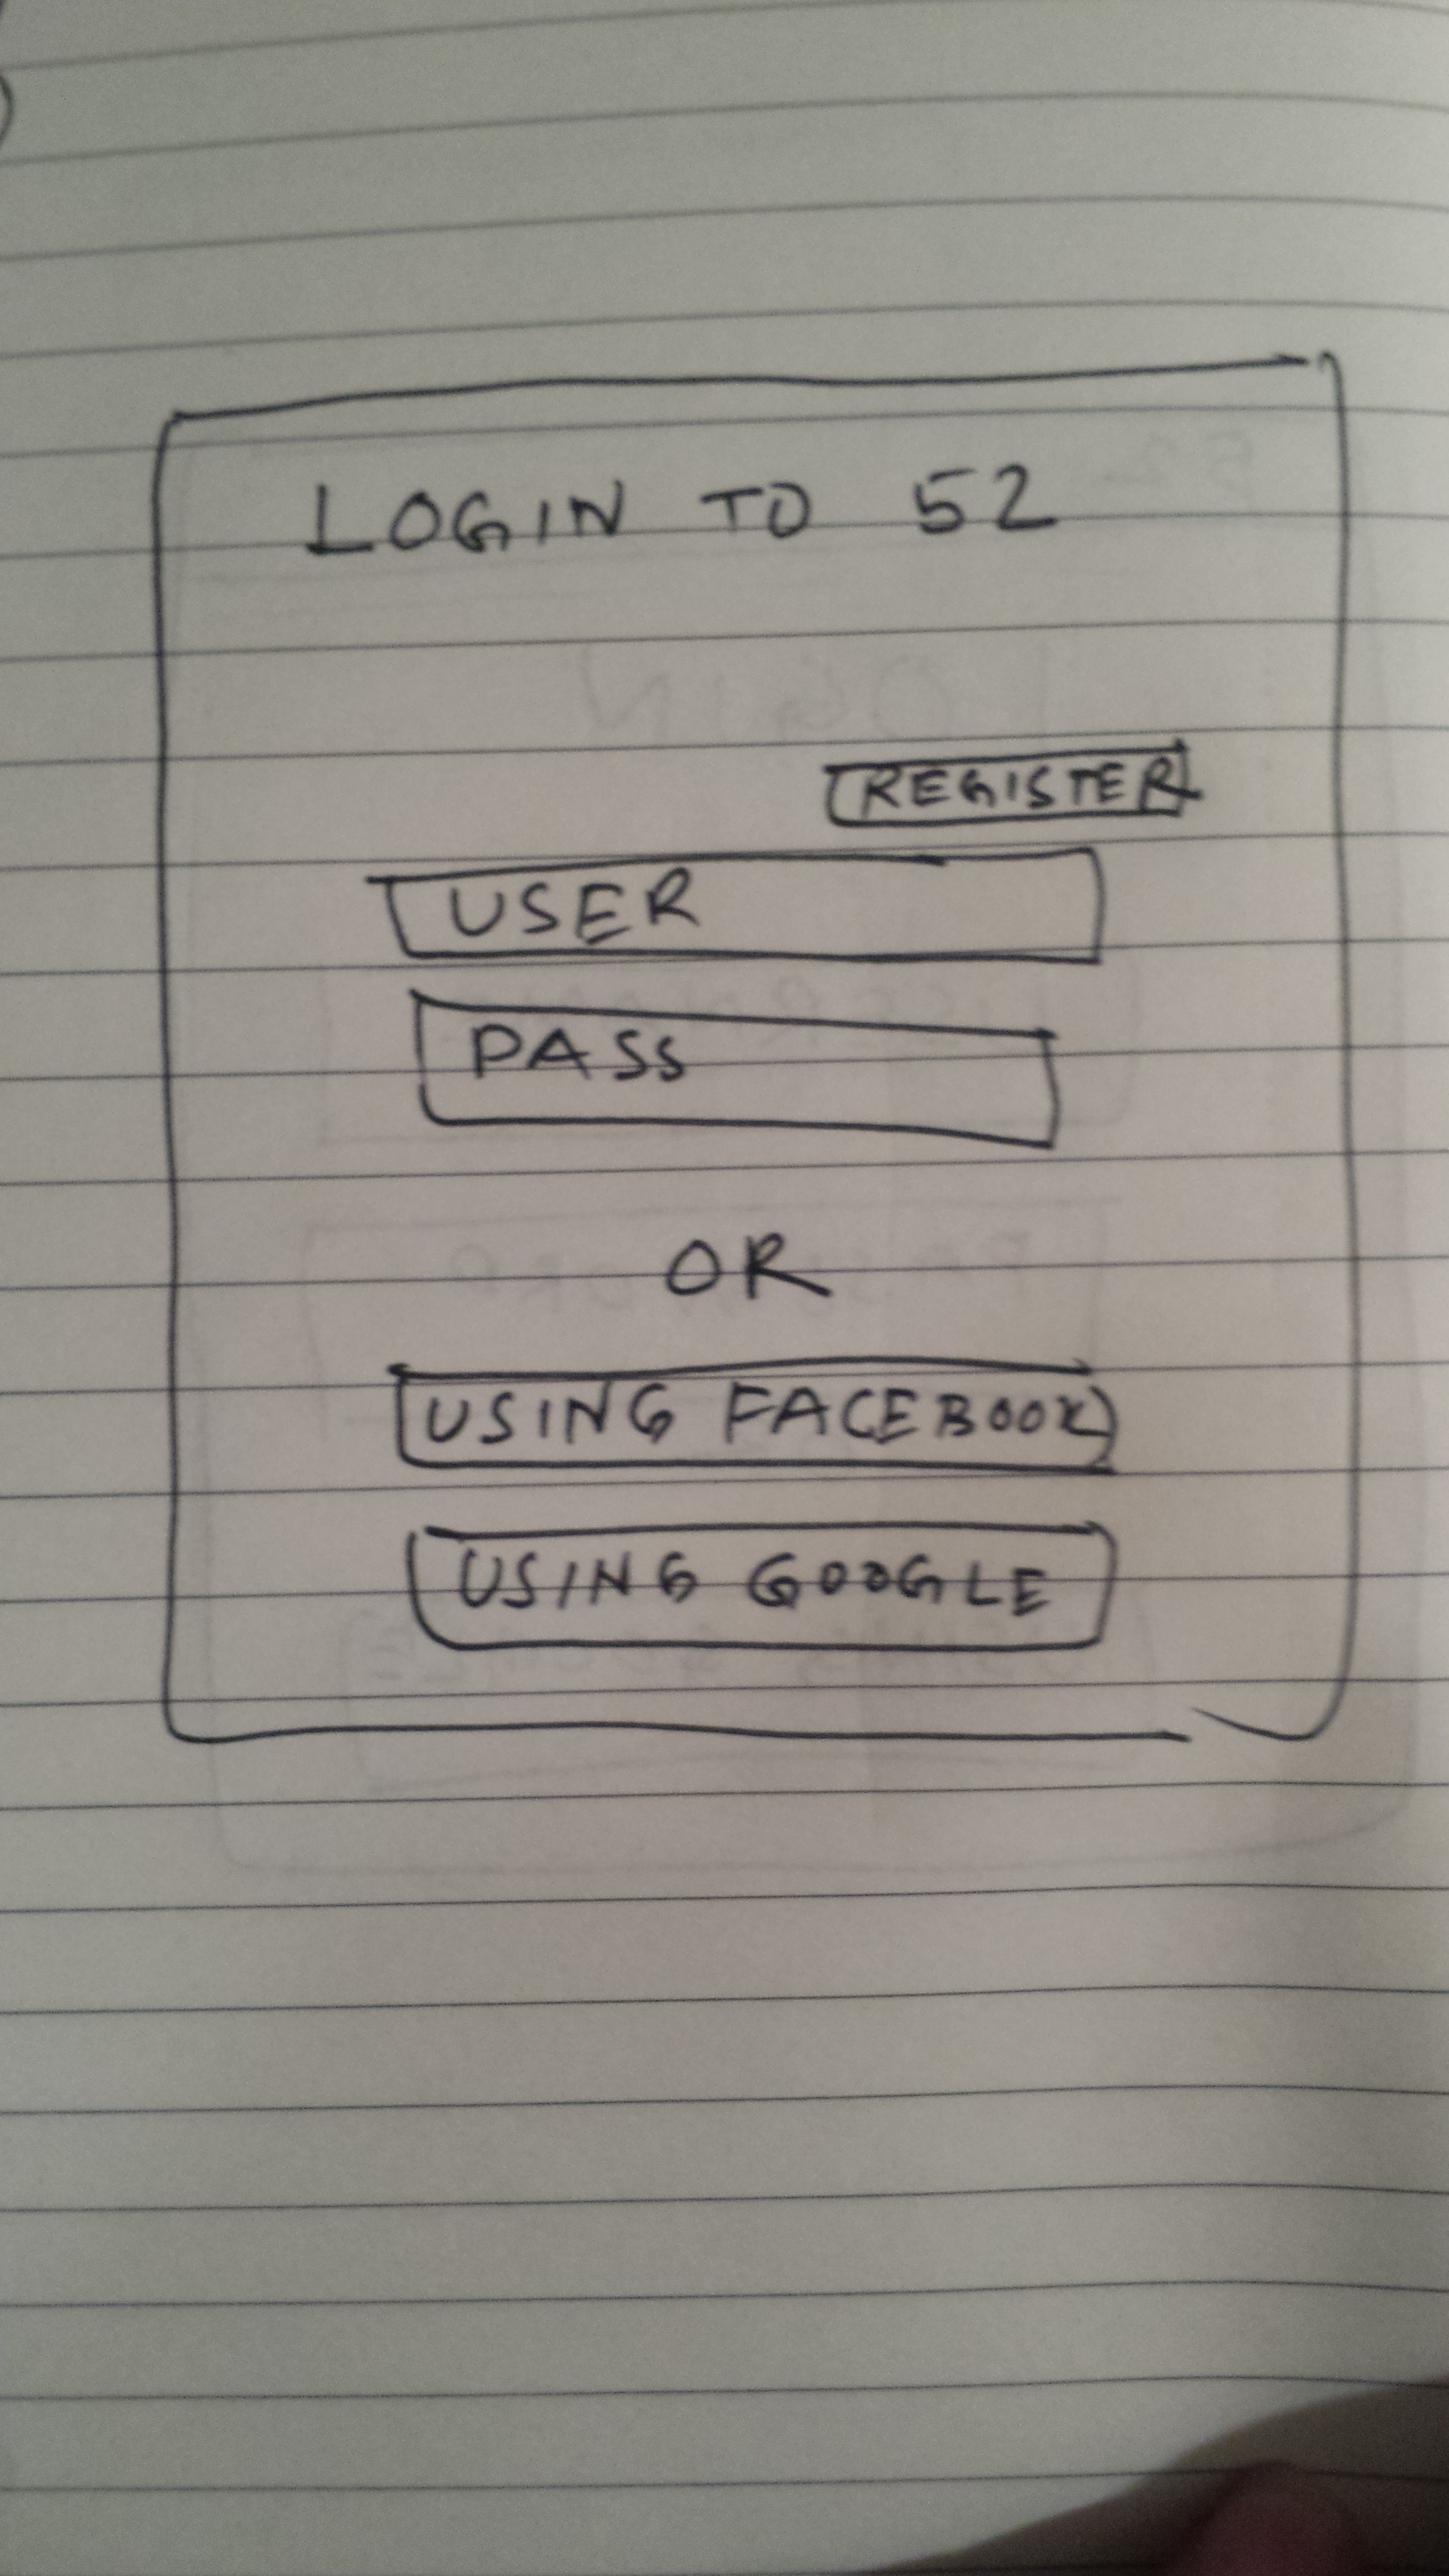 LOGIN TO 52
REGISTER
USER
PASS
OR
USING FACEBOOK
USING GOOGLE